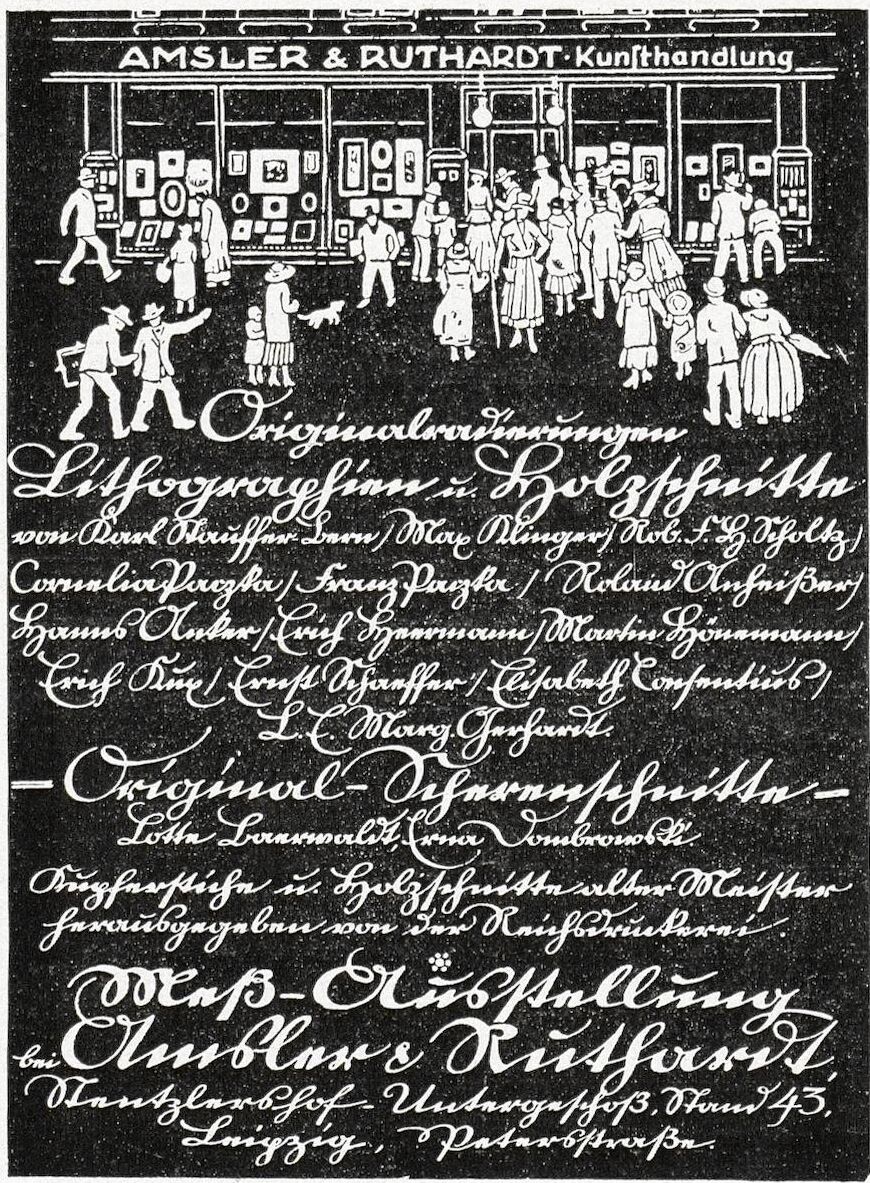 AMSLER & RUTHARDT · Kunſthandlung
Originalradierungen
Lithographien u. Holzschnitte
von Karl Stauffer-Bern / Max Klinger / Rob. F. K. Scholtz /
Cornelia Paczka / Franz Paczka / Roland Anheißer /
Hanns Anker / Erich Heermann / Martin Hönemann /
Erich Kux / Ernst Schaeffer / Elisabeth Consentius /
L. E. Marg. Gerhardt.
— Original-Scherenschnitte —
Lotte Baerwaldt, Erna Dombrowski.
Kupferstiche u. Holzschnitte alter Meister
herausgegeben von der Reichsdruckerei.
Meß-Ausstellung
bei Amsler & Ruthardt,
Stentzlershof - Untergeschoß, Stand 43,
Leipzig, Petersstraße.